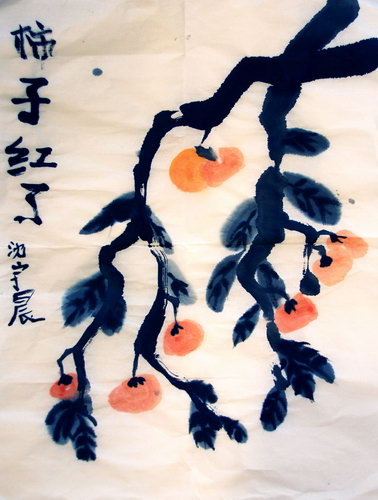 柿子红了
沈宇晨